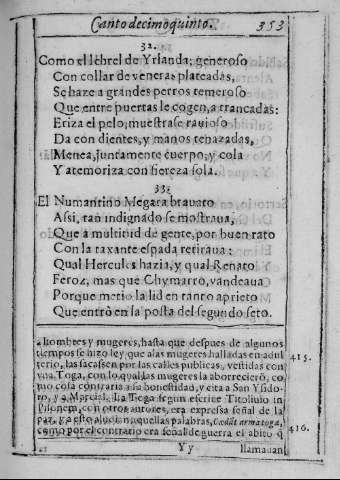 Canto decimoquinto. 353
32.
Como el lebrel de Yrlanda, generoso
Con collar de veneras plateadas,
Se haze a grandes perros temeroso
Que entre puertas le cogen, a trancadas:
Eriza el pelo, muestrase rauioso
Da con dientes, y manos tenazadas,
Menea, juntamente cuerpo, y cola
Y atemoriza con fiereza sola.
33.
El Numantino Megara brauato
Assi, tan indignado se mostraua,
Que a multitud de gente, por buen rato
Con la taxante espada retiraua:
Qual Hercules hazia, y qual Renato
Feroz, mas que Chymarro, vandeaua
Porque metio la lid en tanto aprieto
Que entrò en la posta del segundo seto.
a hombres y mugeres, hasta que despues de algunos
tiempos se hizo ley, que a las mugeres halladas en adul
terio, las sacassen por las calles publicas, vestidas con
vna Toga, con lo qual las mugeres la aborrecierõ, co
mo cosa contraria a su honestidad, y cita a San Ysido-
ro, y a Marcial. La Toga segun escriue Titoliuio in
Pisonem, con otros autores, era expressa señal de la
paz, y a esto aludẽ aquellas palabras, Cedãt arma togæ,
como por el contrario era señal de guerra el abito q̃
415.
416.
Yy llamauan